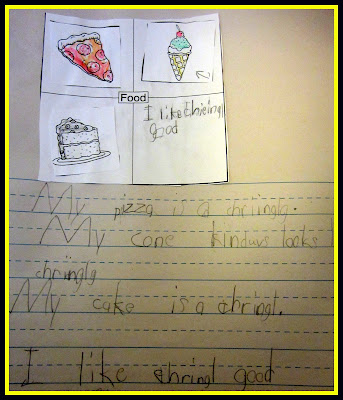 Food
I like thrieingl
good
My pizza is a chriingla.
My cone kinduvs looks
chriingla
My cake is a thringl.
I like thringl good